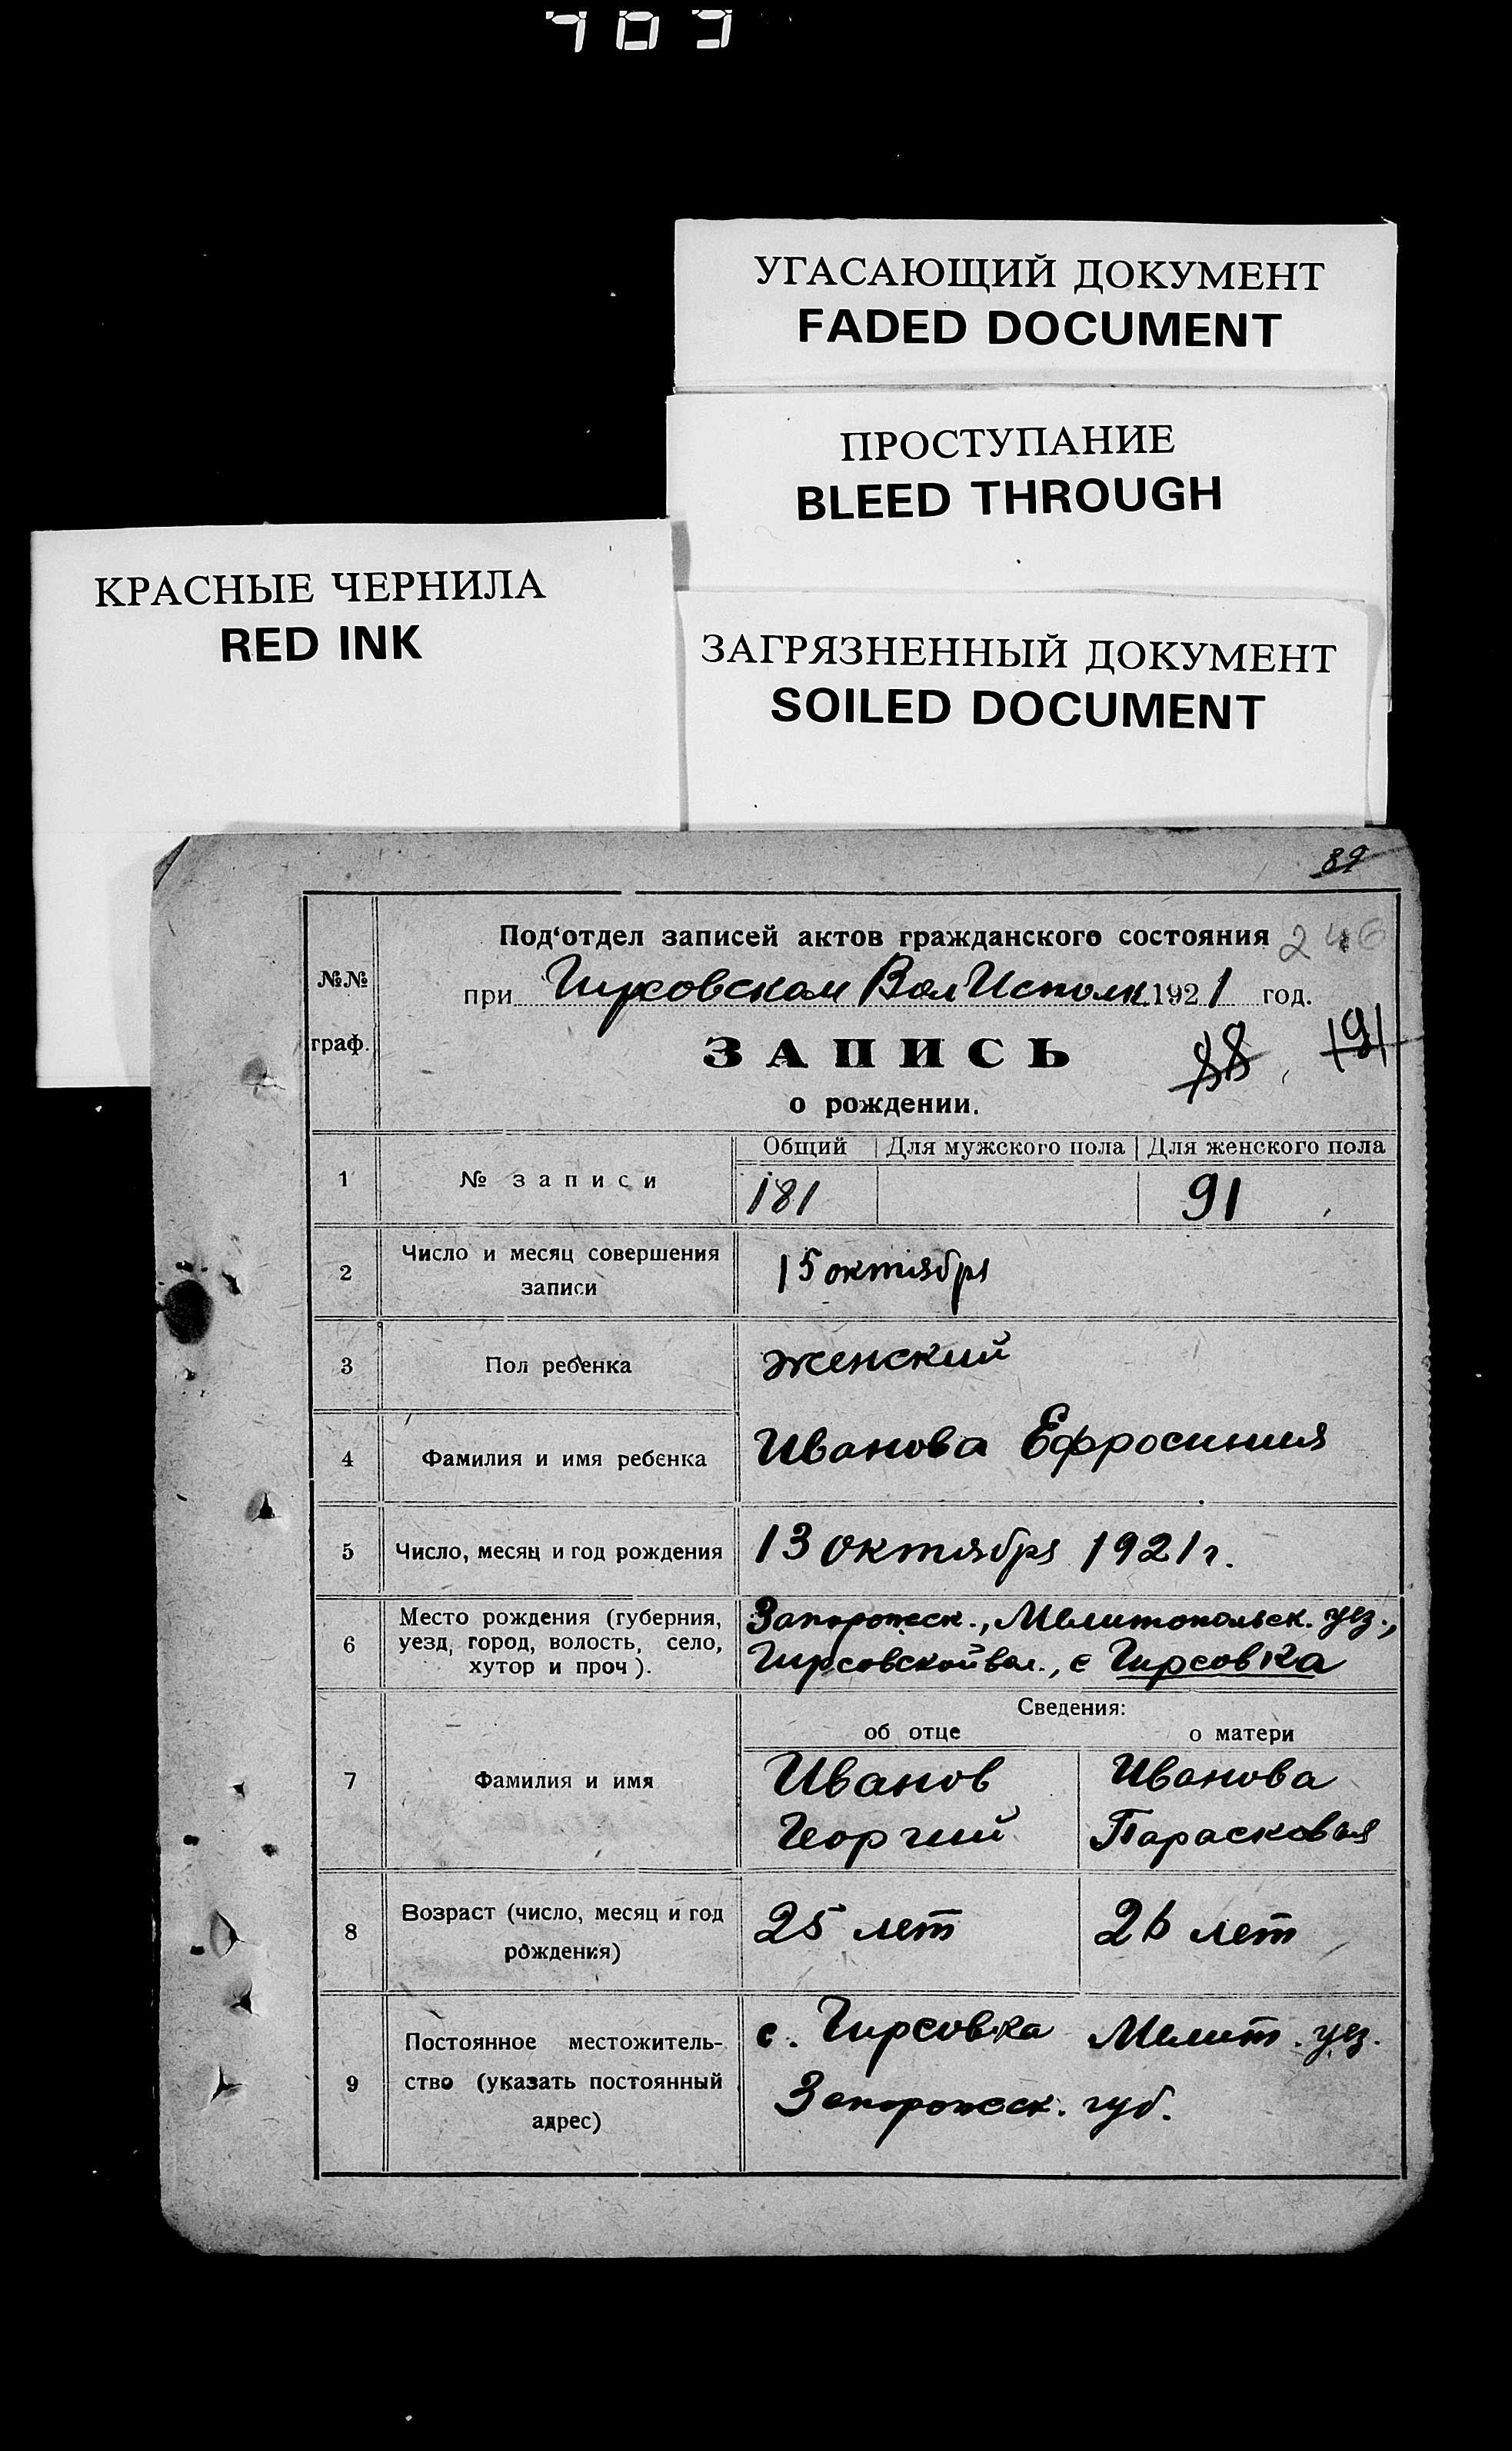 УГАСАЮЩИЙ ДОКУМЕНТ
FADED DOCUMENT
ПРОСТУПАНИЕ
BLEED THROUGH
КРАСНЫЕ ЧЕРНИЛА
RED INK
ЗАГРЯЗНЕННЫЙ ДОКУМЕНТ
SOILED DOCUMENT
89
Под‘отдел записей актов гражданского состояния 246
№№ граф.
при Гирсовском ВолИсполк. 1921 год.
ЗАПИСЬ
88 191
о рождении.
Общий Для мужского пола Для женского пола
1 № записи 181 91
2 Число и месяц совершения записи 15 октября
3 Пол ребенка женский
4 Фамилия и имя ребенка Иванова Ефросиния
5 Число, месяц и год рождения 13 октября 1921 г.
6 Место рождения (губерния, уезд, город, волость, село, хутор и проч). Запорожск., Мелитопольск. уез.,
Гирсовской вол., с Гирсовка
Сведения:
об отце о матери
7 Фамилия и имя Иванов Иванова
Георгий Парасковия
8 Возраст (число, месяц и год рождения) 25 лет 26 лет
9 Постоянное местожитель-
ство (указать постоянный
адрес)
с. Гирсовка Мелит. уез.
Запорожск. губ.